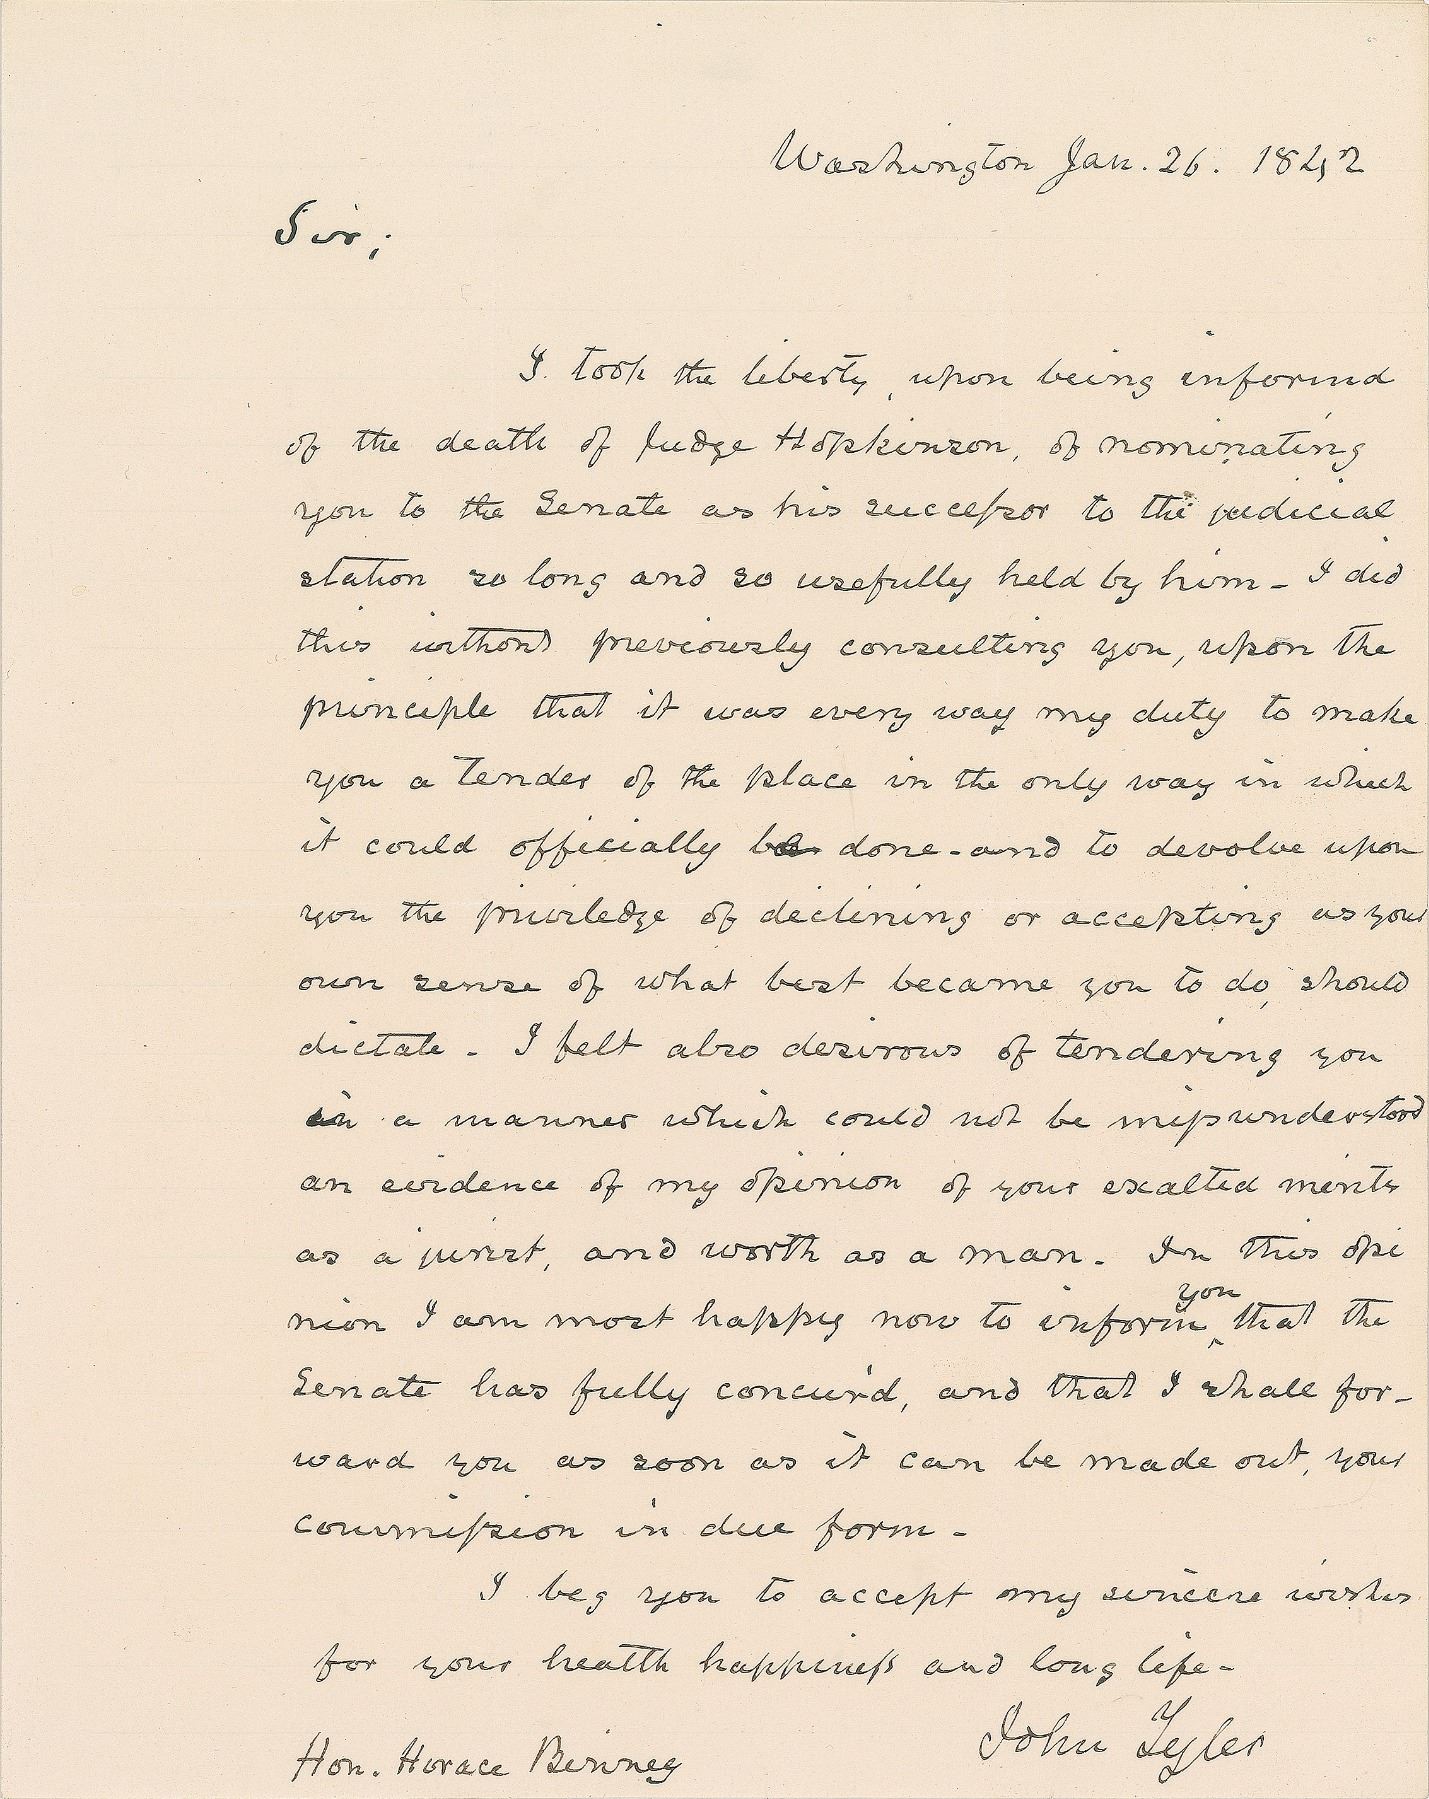 Washington Jan. 26. 1842
Sir;
I took the liberty, upon being informd
of the death of Judge Hopkinson, of nominating
you to the Senate as his successor to the judicial
station so long and so usefully held by him - I did
this without previously consulting you, upon the
principle that it was every way my duty to make
you a tender of the place in the only way in which
it could officially be done - and to devolve upon
you the priviledge of declining or accepting as your
own sense of what best became you to do, should
dictate - I felt also desirous of tendering you
in a manner which could not be misunderstood
an evidence of my opinion of your exalted merits
as a jurist, and worth as a man. In this opi
nion I am most happy now to inform you that the
Senate has fully concur'd, and that I shall for-
ward you as soon as it can be made out, your
commission in due form -
I beg you to accept my sincere wishes
for your health happiness and long life -
John Tyler
Hon. Horace Binney